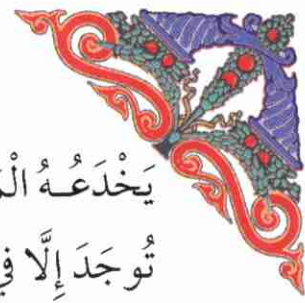 يَخْدَعُـهُ
تُوجَدَ إِلَّا فِي